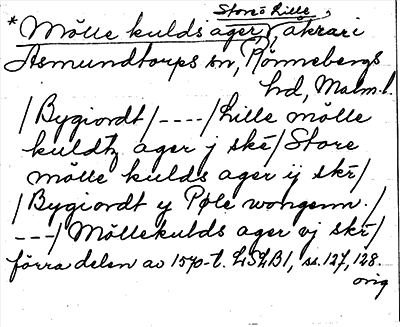 Store o Lille
* Mölle kulds ager, åkrar i
Asmundtorps sn, Rönnebergs
hd, Malm. l.
/Bygiordt/----/Lille mölle
kuldtz ager j ske/Store
mölle kulds ager ij skr/
/Bygiordt y Pøle wongenn./
---/Möllekulds ager vj skr/
förra delen av 1570-t. LSLB1, ss. 127, 128.
orig